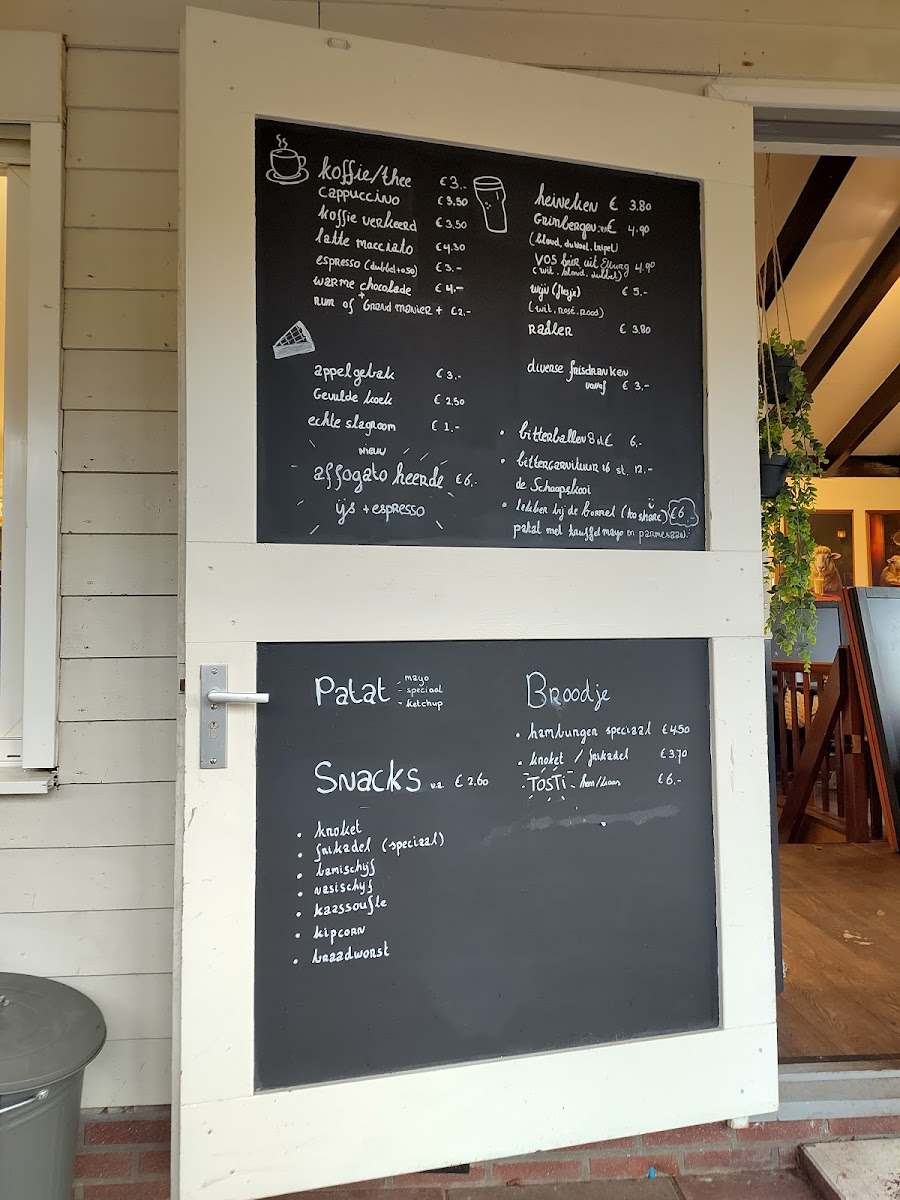 koffie/thee € 3.-
cappuccino € 3.50
koffie verkeerd € 3.50
latte macciato € 4.30
espresso (dubbel+0.50) € 3.-
warme chocolade € 4.-
+
rum of Grand manier + € 2.-
appelgebak € 3.-
Gevulde koek € 2.50
echte slagroom € 1.-
NIEUW
affogato heerde € 6.-
ijs + espresso
heineken € 3.80
Grimbergen € 4.90
(blond, dubbel, tripel)
VOS bier uit Elburg 4.90
(wit, blond, dubbel)
wijn (flesje) € 5.-
(wit, rosé, rood)
radler € 3.80
diverse frisdranken
vanaf € 3.-
• bitterballen 8 st € 6.-
• bittergarnituur 16 st. 12.-
de Schaapskooi
• lekker bij de borrel (to share) €6
patat met truffelmayo en parmesaan.
Patat - mayo
- speciaal
- ketchup
Snacks v.a. € 2.60
• kroket
• frikadel (speciaal)
• bamischijf
• nasischijf
• kaassoufle
• kipcorn
• braadworst
Broodje
• hamburger speciaal € 4.50
• kroket / frikadel € 3.70
- TOSTI - ham/kaas € 6.-